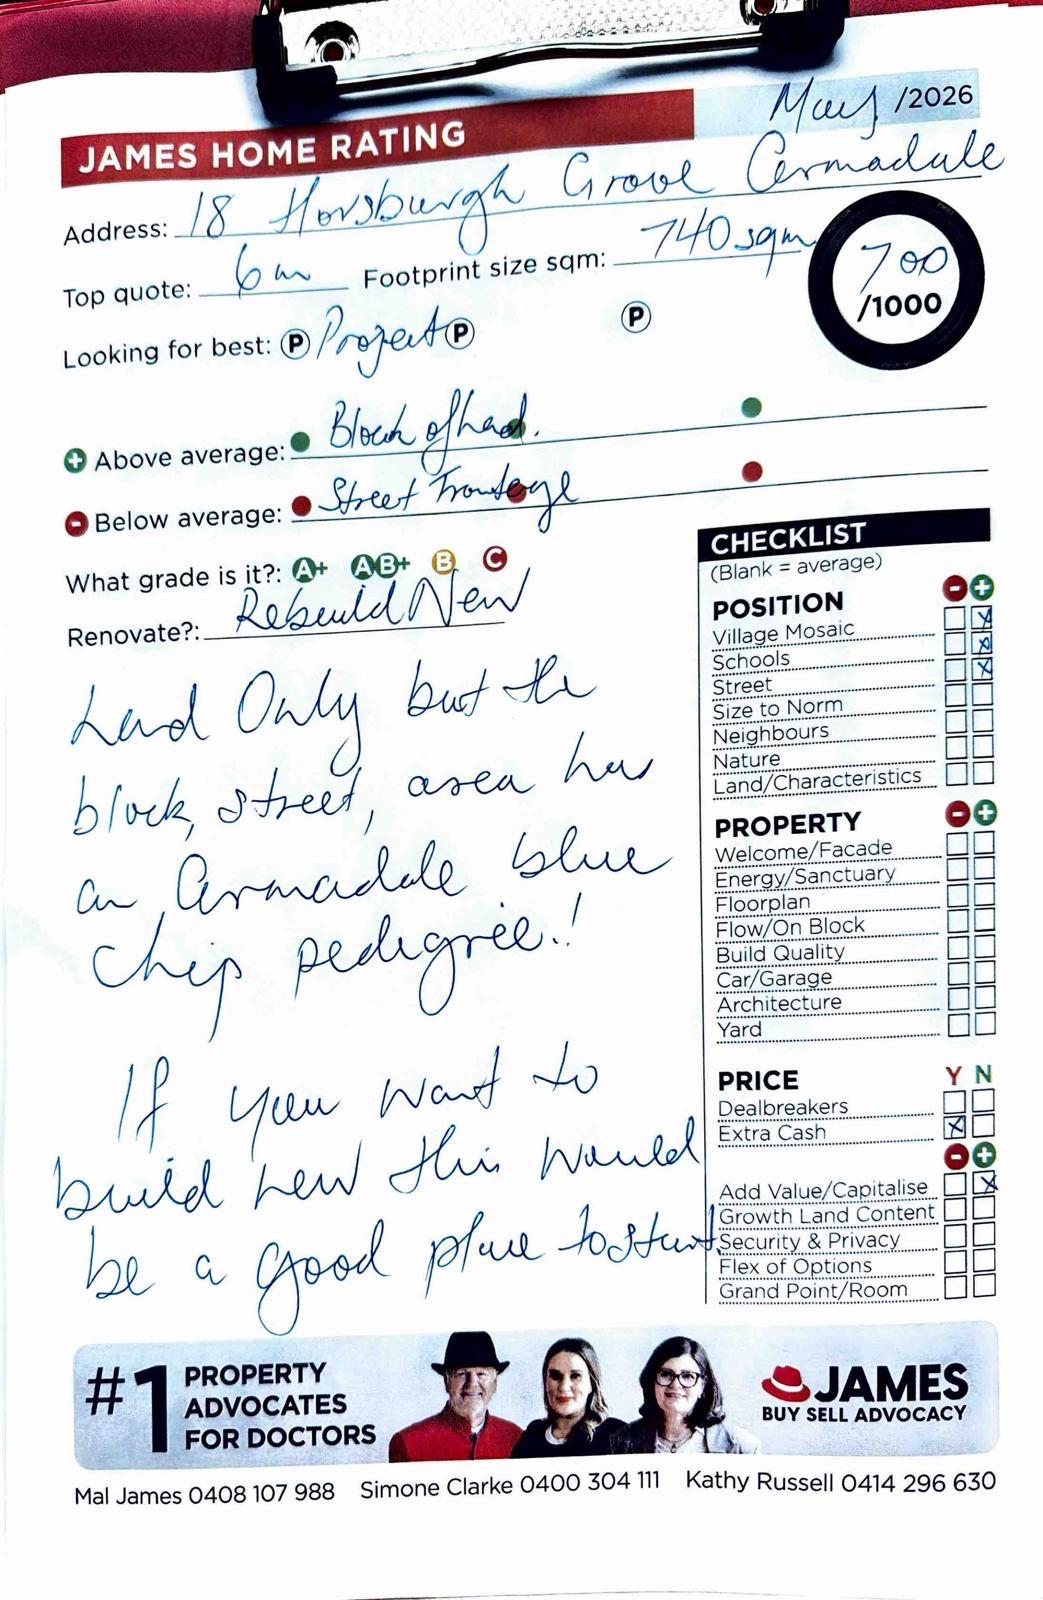 May /2026
JAMES HOME RATING
Address: 18 Horsburgh Grove Armadale
Top quote: 6m Footprint size sqm: 740sqm
700
/1000
Looking for best: P Project P P
+ Above average: Block of land.
- Below average: Street Frontage
What grade is it?: A+ AB+ B C
Renovate?: Rebuild New
Land Only but the
block, street, area has
an Armadale blue
chip pedigree!
If you want to
build new this would
be a good place to start.
CHECKLIST
(Blank = average)
POSITION - +
Village Mosaic
Schools
Street
Size to Norm
Neighbours
Nature
Land/Characteristics
PROPERTY - +
Welcome/Facade
Energy/Sanctuary
Floorplan
Flow/On Block
Build Quality
Car/Garage
Architecture
Yard
PRICE Y N
Dealbreakers
Extra Cash
- +
Add Value/Capitalise
Growth Land Content
Security & Privacy
Flex of Options
Grand Point/Room
#1 PROPERTY
ADVOCATES
FOR DOCTORS
JAMES
BUY SELL ADVOCACY
Mal James 0408 107 988 Simone Clarke 0400 304 111 Kathy Russell 0414 296 630